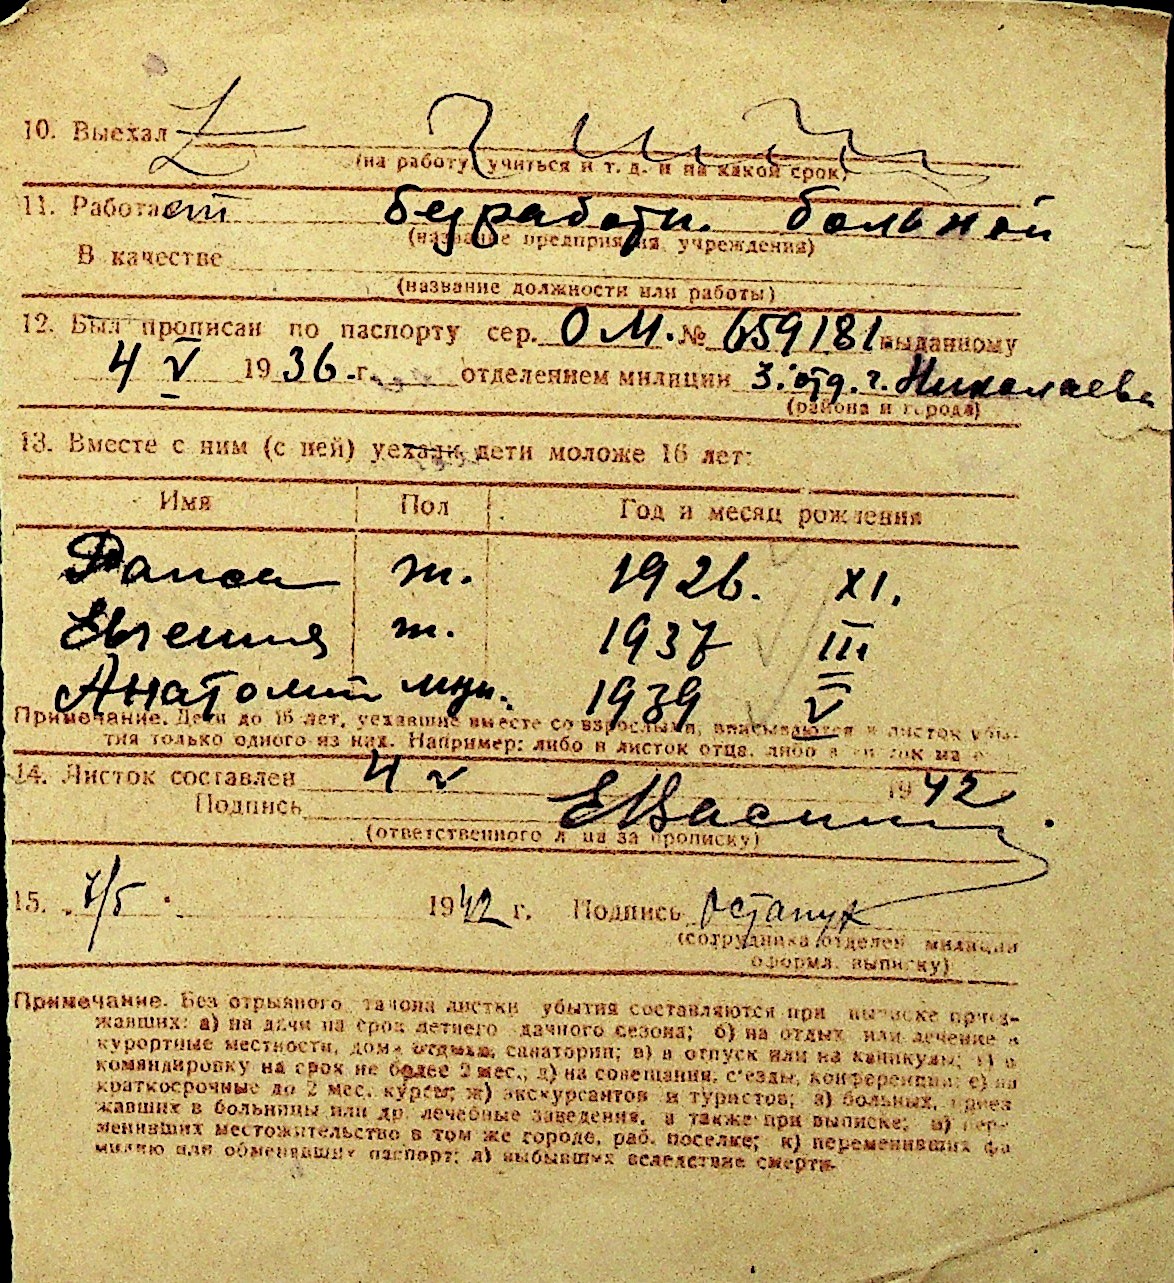 10. Выехал
(на работу, учиться и т. д. и на какой срок)
11. Работает безработн. больной
(название предприятия, учреждения)
В качестве
(название должности или работы)
12. Был прописан по паспорту сер. ОМ. № 659181 выданному
4 V 1936 г. отделением милиции 3. отд. г. Николаева
(района и города)
13. Вместе с ним (с ней) уехали дети моложе 16 лет:
Имя Пол Год и месяц рождения
Раиса ж. 1926. XI.
Евгения ж. 1937 III
Анатолий муж. 1939 V
Примечание. Дети до 16 лет, уехавшие вместе со взрослыми, вписываются в листок убы-
тия только одного из них. Например: либо в листок отца, либо в листок ма
14. Листок составлен 4 V 1942
Подпись
(ответственного лица за прописку)
15. 7/5 1942 г. Подпись Остапук
(сотрудника отделен. милиции
оформл. выписку)
Примечание. Без отрывного талона листки убытия составляются при выписке приез-
жавших: а) на дачи на срок летнего дачного сезона; б) на отдых или лечение в
курортные местности, дома отдыха, санатории; в) в отпуск или на каникулы; г) в
командировку на срок не более 2 мес.; д) на совещания, с'езды, конференции; е) на
краткосрочные до 2 мес. курсы; ж) экскурсантов и туристов; з) больных, приез
жавших в больницы или др. лечебные заведения, а также при выписке; и) пере-
менивших местожительство в том же городе, раб. поселке; к) переменивших фа
милию или обменявших паспорт; л) выбывших вследствие смерти.